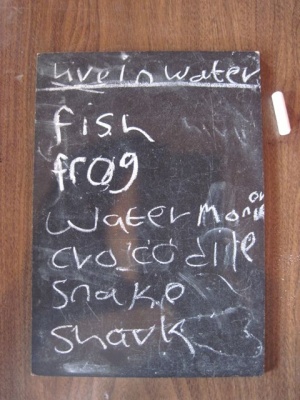 live in water
fish
frog
water moni
or
crocodile
snake
shark